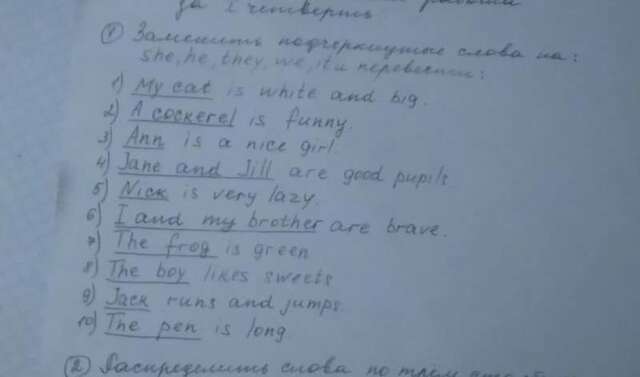 за I четверть
① Заменить подчеркнутые слова на:
she, he, they, we, it и перевести:
1) My cat is white and big.
2) A cockerel is funny.
3) Ann is a nice girl.
4) Jane and Jill are good pupils
5) Nick is very lazy.
6) I and my brother are brave.
7) The frog is green
8) The boy likes sweets
9) Jack runs and jumps.
10) The pen is long
② Распределить слова по трём